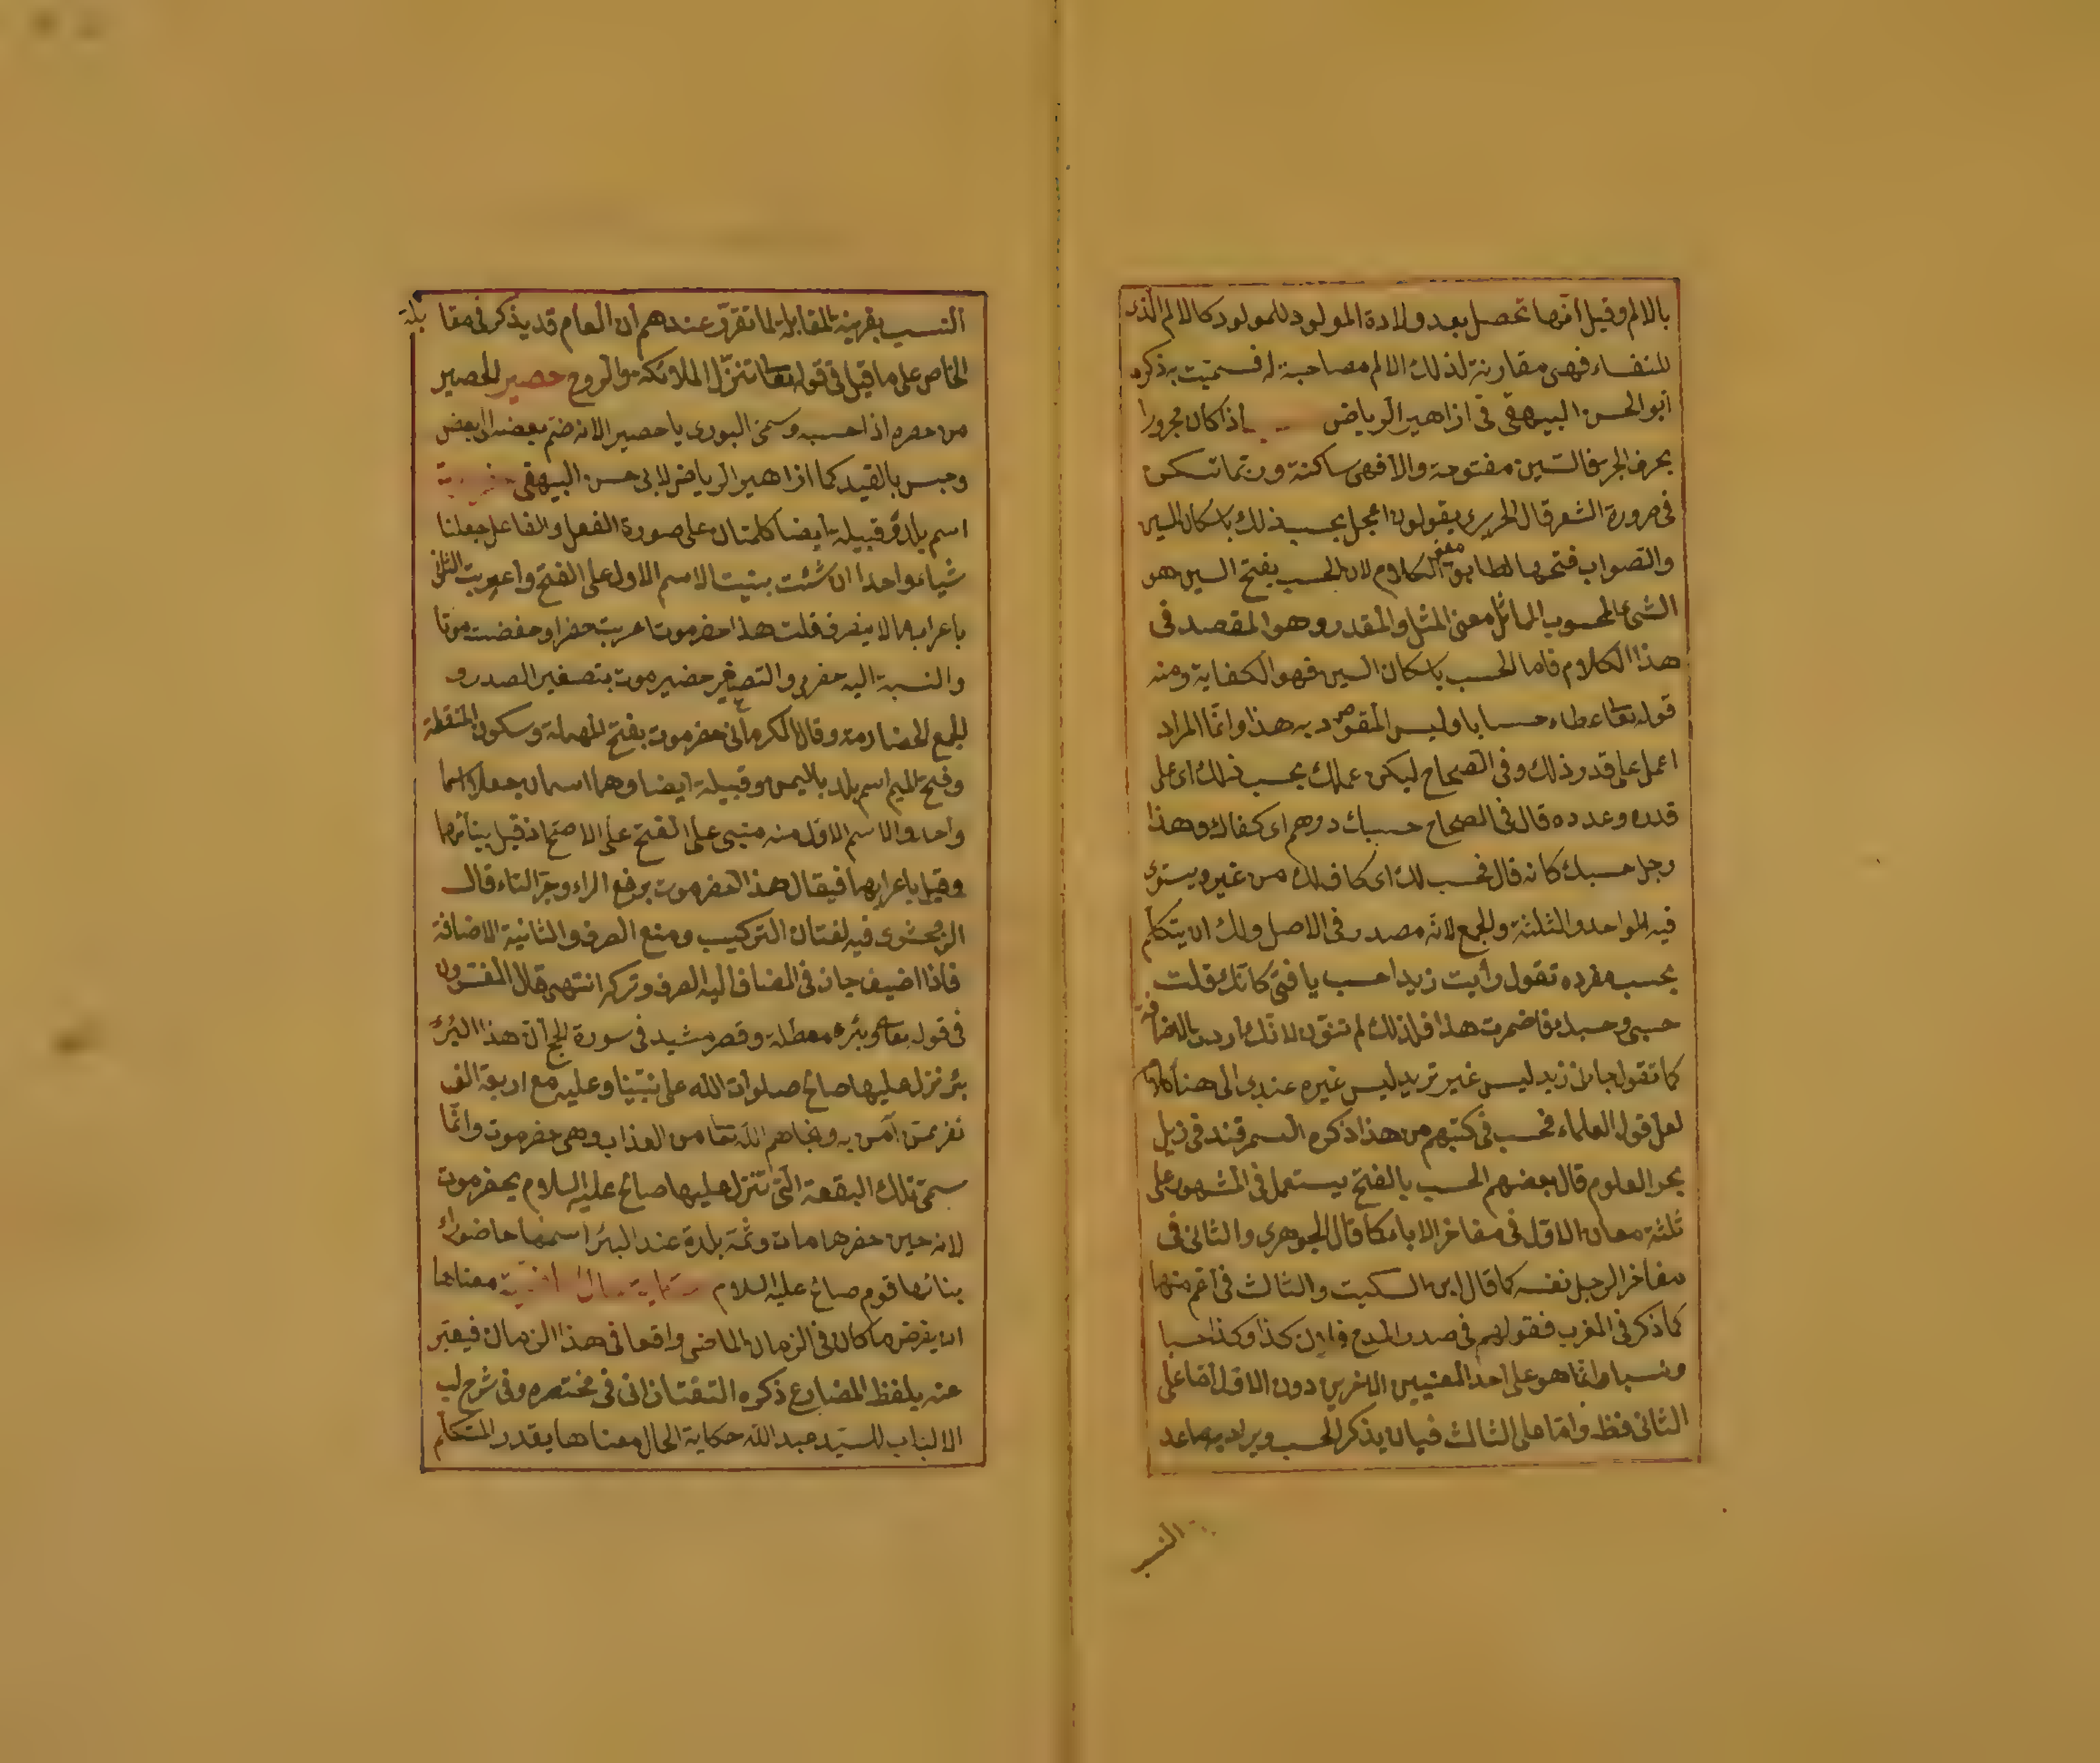 بالالم وقيل انها تحصل بعد ولادة المولود للمولود كالالم الذى
للنفساء فهى مقارنة لذلك الالم مصاحبة له فسميت به ذكره
ابو الحسن البيهقى فى ازاهير الرياض اذا كان مجرورا
بحرف الجر فالسين مفتوحة والا فهى ساكنة وربما تسكن
فى ضرورة الشعر قال الحريرى يقولون اعمل بحسب ذلك باسكان السين
والصواب فتحها لطابق معنى الكلام لان الحسب بفتح السين هو
الشئ المحسوب المماثل معنى المثل والمقدر وهو المقصد فى
هذا الكلام فاما الحسب باسكان السين فهو الكفاية ومنه
قوله تعا عطاء حسابا وليس المقصود به هذا وانما المراد
اعمل على قدر ذلك وفى الصحاح ليكن عملك بحسب ذلك اى على
قدره وعدده قال فى الصحاح حسبك درهم اى كفاك وهذا
رجل حسبك كانه قال محسب لك اى كاف لك من غيره يستوى
فيه الواحد والثلثة والجمع لانه مصدر فى الاصل ولك ان يتكلم
بحسب مفرده تقول رأيت زيدا حسب يا فتى كانك قلت
حسبى وحسبك فاضمرت هذا فلذلك لم تنون لانك اردت الاضافة
كما تقول جاءنى زيد ليس غير تريد ليس غيره عندى الى هنا كلامه
لعل قول العلماء فحسب فى كتبهم من هذا ذكره السمرقندى فى ذيل
بحر العلوم قال بعضهم الحسب بالفتح يستعمل فى المشهور على
ثلثة معان الاول فى مفاخر الاباء كما قال الجوهرى والثانى فى
مفاخر الرجل نفسه كما قال ابن السكيت والثالث فى اعم منها
كما ذكر فى المغرب فقولهم فى صدر المدح فلان كذا وكذا حسبا
ونسبا وانما هو على احد المعنيين الاخرين دون الاول اما على
الثانى فظ واما على الثالث فبان يذكر الحسب ويراد به ما عدا
النسب
النسب بقرينة المقابلة لما تقرر عندهم ان العام قد يذكر فى مقابلة
الخاص على ما قيل فى قوله تعا تنزل الملائكة والروح حصير الحصير
من حصره اذا حسبه وسمى البورى يا حصير الانه ضم بعضه الى بعض
وحبس بالقيد كما ازاهير الرياض لابى حسن البيهقى
اسم بلد وقبيلة ايضا كلمتان على صورة الفعل والفاعل جعلنا
شياء واحدا ان شئت بنيت الاسم الاول على الفتح واعربت الثانى
باعراب ما لا ينصرف قلت هذا حضرموت اعربت حضرا وخفضت موتا
والنسبة اليه حضرمى والتصغير حضيرموت بتصغير الصدر و
الجمع الحضارمة وقال الكرمانى حضرموت بفتح المهملة وسكون المنقطة
وفتح الميم اسم بلد باليمن وقبيلة ايضا وهما اسمان جعلا اسما
واحدا والاسم الاول منه مبنى على الفتح على الاصح اذ قيل ببنائهما
وقيل باعرابهما فيقال هذا حضرموت برفع الراء وجر التاء قال
الزمحشرى فيه لغتان التركيب ومنع الصرف والثانية الاضافة
فاذا اضيف جاز فى المضاف اليه الصرف وتركه انتهى قال المفسرون
فى قوله تعا وبئر معطلة وقصر مشيد فى سورة الحج ان هذا البئر
بئر نزل عليها صالح صلوات الله على نبينا وعليه مع اربعة الف
نفر ممن آمن به ونجاهم الله تعا من العذاب وهى حضرموت وانما
سمى تلك البقعة التى تنزل عليها صالح عليه السلام بحضرموت
لانه حين حضرها مات وثمة بلدة عند البئر اسمها حاضوراء
بناها قوم صالح عليه السلام معناها
ان يفرض ما كان فى الزمان الماضى واقعا فى هذا الزمان فيعبر
عنه بلفظ المضارع ذكره التفتازانى فى مختصره وفى شرح لب
الالباب للسيد عبد الله حكاية الحال معناها يقدر المتكلم